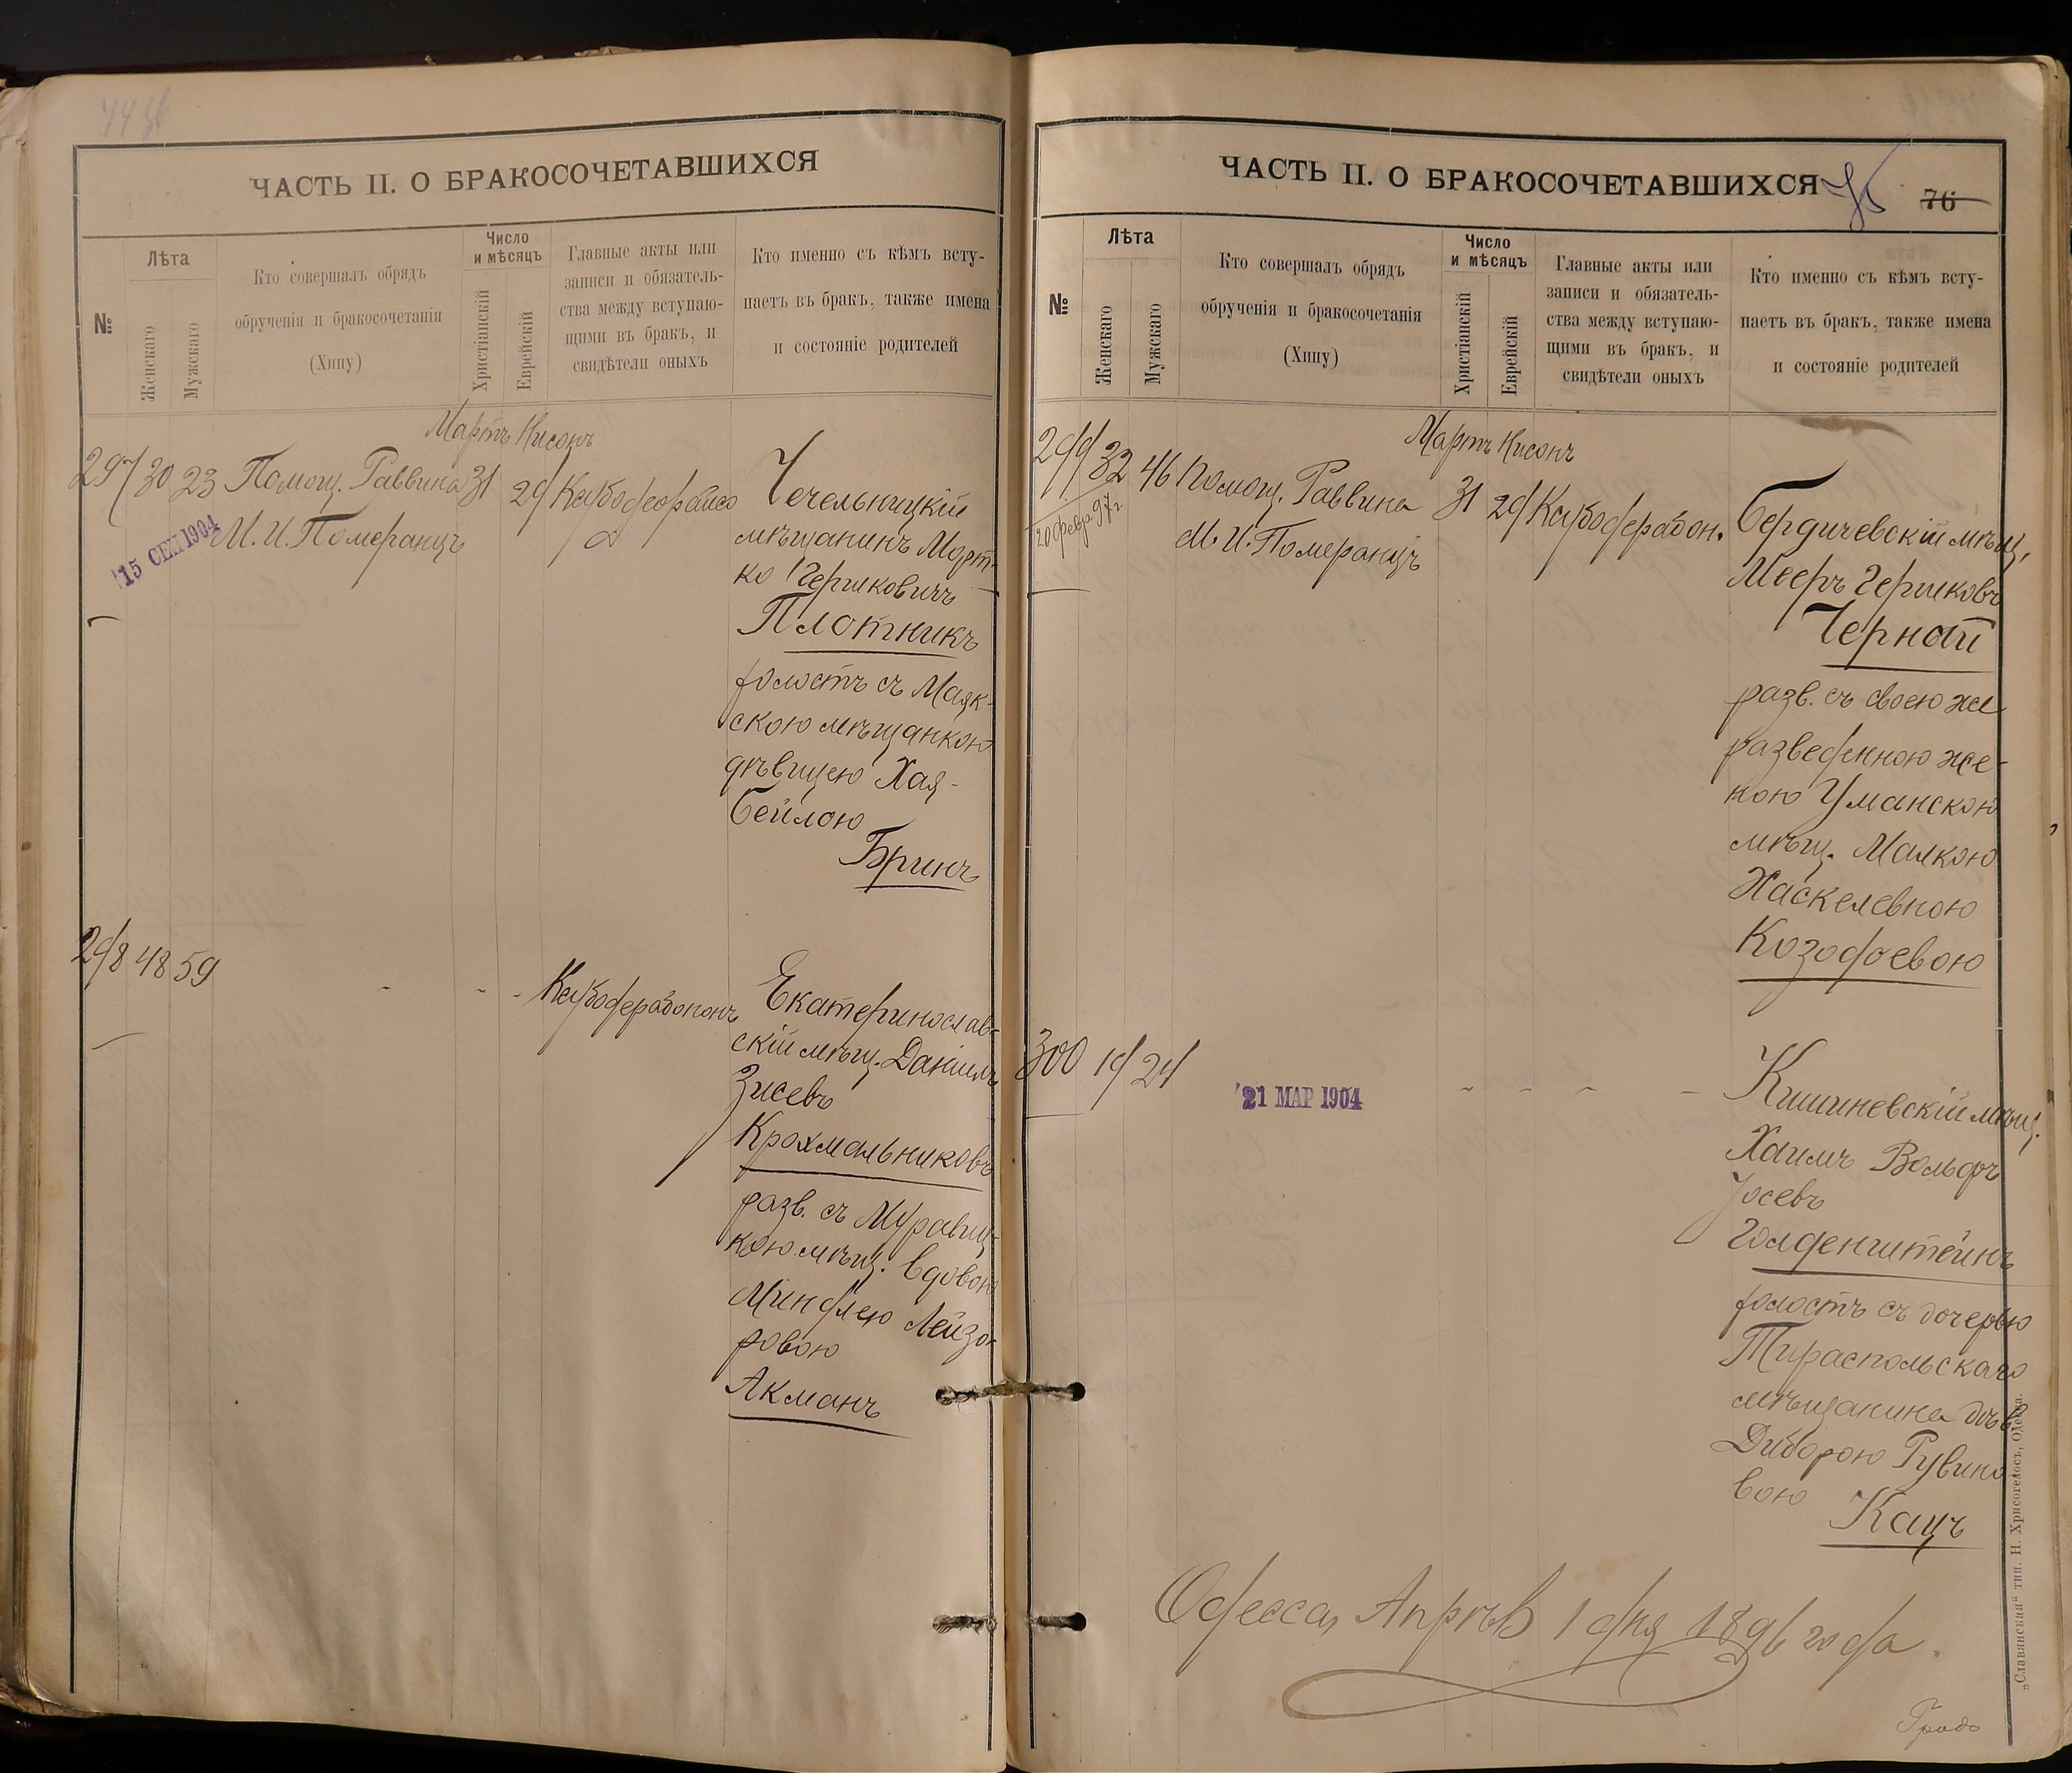 ЧАСТЬ II. О БРАКОСОЧЕТАВШИХСЯ
№
Лѣта
Женскаго
Мужскаго
Кто совершалъ обрядъ
обрученія и бракосочетанія
(Хипу)
Число
и мѣсяцъ
Христіанскій
Еврейскій
Главные акты или
записи и обязатель-
ства между вступаю-
щими въ бракъ, и
свидѣтели оныхъ
Кто именно съ кѣмъ всту-
паетъ въ бракъ, также имена
и состояніе родителей
Мартъ Нисонъ
297 30 23 Помощ. Раввина 31 29
М. И. Померанцъ
15 СЕН 1904
Чечельницкій
мѣщанинъ Морт-
ко Гершковичъ
Плотникъ
холостъ съ Маяк-
скою мѣщанкою
дѣвицею Хая-
Бейлою
Бринъ
298 48 59
Екатеринослав-
скій мѣщ. Данiилъ
Зисевъ
Крохмальниковъ
разв. съ
кою мѣщ. вдовою
Миндлею Лейзо-
ровою
Акманъ
ЧАСТЬ II. О БРАКОСОЧЕТАВШИХСЯ
75
76
№
Лѣта
Женскаго
Мужскаго
Кто совершалъ обрядъ
обрученія и бракосочетанія
(Хипу)
Число
и мѣсяцъ
Христіанскій
Еврейскій
Главные акты или
записи и обязатель-
ства между вступаю-
щими въ бракъ, и
свидѣтели оныхъ
Кто именно съ кѣмъ всту-
паетъ въ бракъ, также имена
и состояніе родителей
Мартъ Нисонъ
299 32 46 Помощ. Раввина 31 29
20 февр 97 г.
М. И. Померанцъ
Бердичевскій мѣщ.
Мееръ Гершковъ
Черной
разв. съ своею же
разведенною же-
ною Уманскою
мѣщ. Малкою
Хаскелевною
Козодоевою
300 19 24
21 МАР 1904
Кишиневскій мѣщ.
Хаимъ Вольфъ
Іосевъ
Голденштейнъ
холостъ съ дочерью
Тираспольскаго
мѣщанина дѣв
Диборою Рувино
вою
Кацъ
Одесса, Апрѣль 1 дня 1896 года.
„Славянская“ тип. Н. Хрисогелосъ, Одесса.